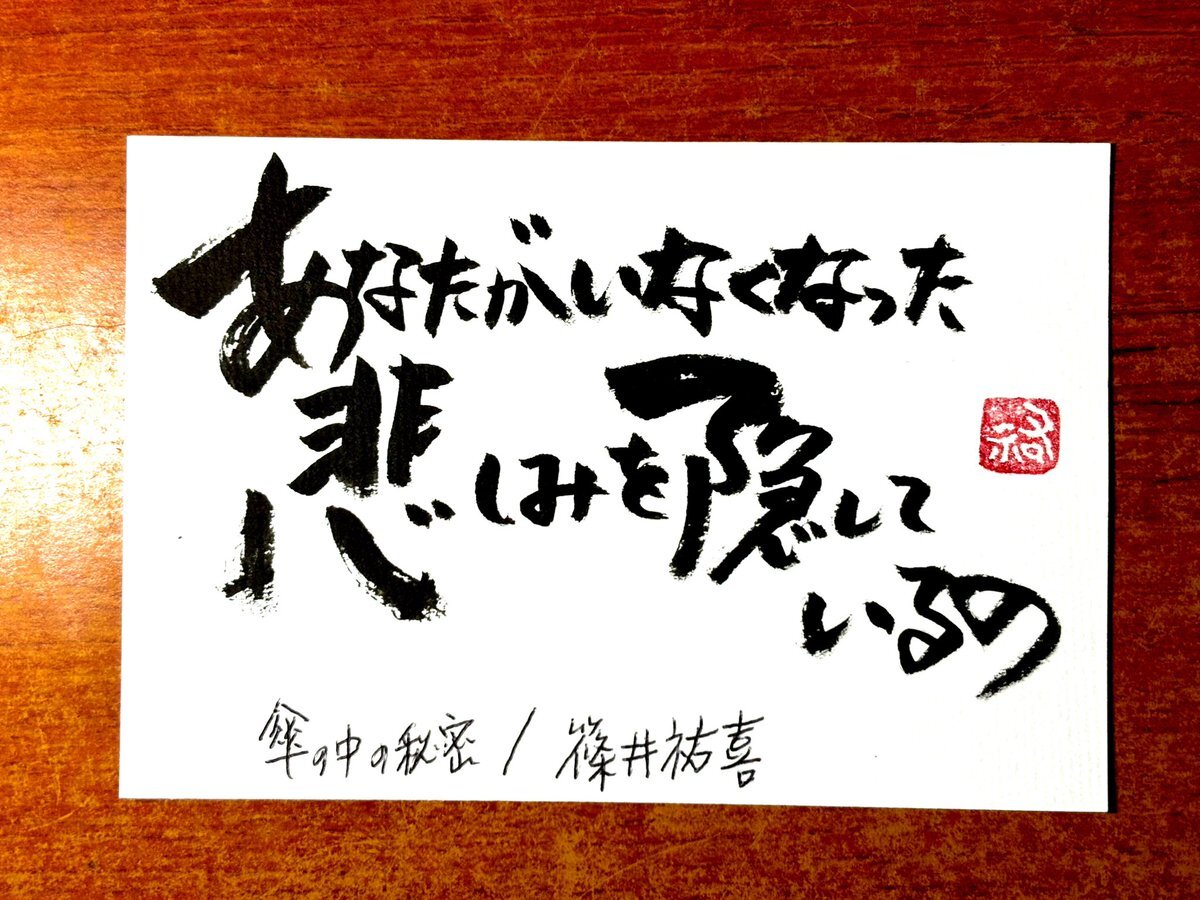 あなたがいなくなった
悲しみを隠して
いるの
祐
傘の中の秘密 / 篠井祐喜